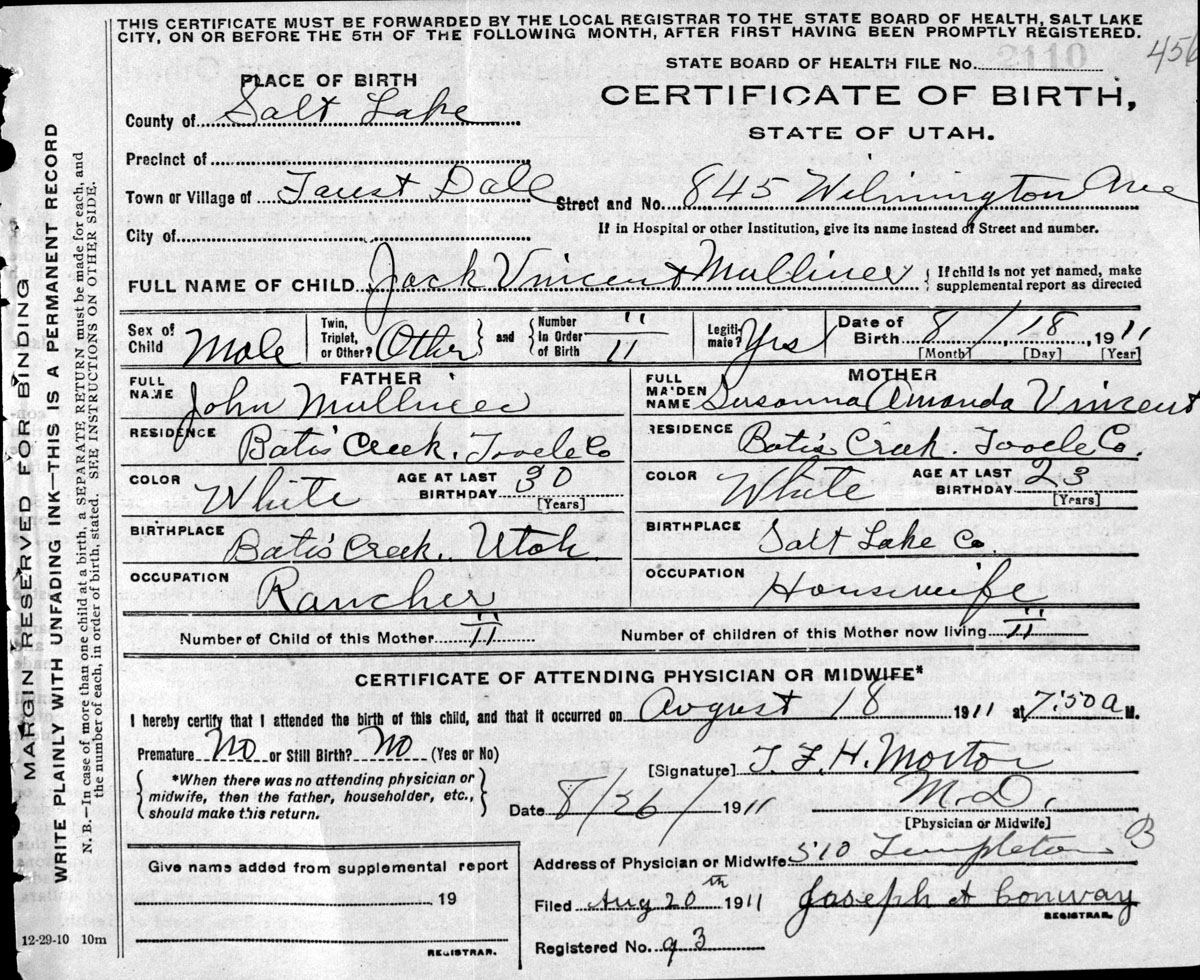 THIS CERTIFICATE MUST BE FORWARDED BY THE LOCAL REGISTRAR TO THE STATE BOARD OF HEALTH, SALT LAKE
CITY, ON OR BEFORE THE 5TH OF THE FOLLOWING MONTH, AFTER FIRST HAVING BEEN PROMPTLY REGISTERED.
456
2110
STATE BOARD OF HEALTH FILE No.
PLACE OF BIRTH
CERTIFICATE OF BIRTH,
STATE OF UTAH.
County of Salt Lake
Precinct of
Town or Village of Dale Street and No. 845 Wilmington Ave
City of If in Hospital or other Institution, give its name instead of Street and number.
FULL NAME OF CHILD Jack Vincent Mulliner { If child is not yet named, make
supplemental report as directed
Sex of Child Male Twin, Triplet, or Other? Other } and { Number in Order of Birth II Legiti-mate? Yes Date of Birth 8 / 18, 1911
[Month] [Day] [Year]
FATHER MOTHER
FULL NAME John Mulliner FULL MAIDEN NAME Susanna Amanda Vincent
RESIDENCE Batis Creek. Tooele Co RESIDENCE Batis Creek. Tooele Co.
COLOR White AGE AT LAST BIRTHDAY 30 [Years] COLOR White AGE AT LAST BIRTHDAY 23 [Years]
BIRTHPLACE Batis Creek. Utah BIRTHPLACE Salt Lake Co.
OCCUPATION Rancher OCCUPATION Housewife
Number of Child of this Mother II Number of children of this Mother now living II
CERTIFICATE OF ATTENDING PHYSICIAN OR MIDWIFE*
I hereby certify that I attended the birth of this child, and that it occurred on August 18 1911 at 7:50 a M.
Premature No or Still Birth? No (Yes or No)
[Signature] T. F. H. Morton
{ *When there was no attending physician or
midwife, then the father, householder, etc.,
should make this return. }
Date 8/26/1911 M.D.
[Physician or Midwife]
Give name added from supplemental report
19
REGISTRAR.
Address of Physician or Midwife 510 Templeton B
Filed Aug 20th 1911 Joseph A Conway
REGISTRAR.
Registered No. 93
12-29-10 10m
MARGIN RESERVED FOR BINDING
WRITE PLAINLY WITH UNFADING INK—THIS IS A PERMANENT RECORD
N. B.—In case of more than one child at a birth, a SEPARATE RETURN must be made for each, and
the number of each, in order of birth, stated. SEE INSTRUCTIONS ON OTHER SIDE.